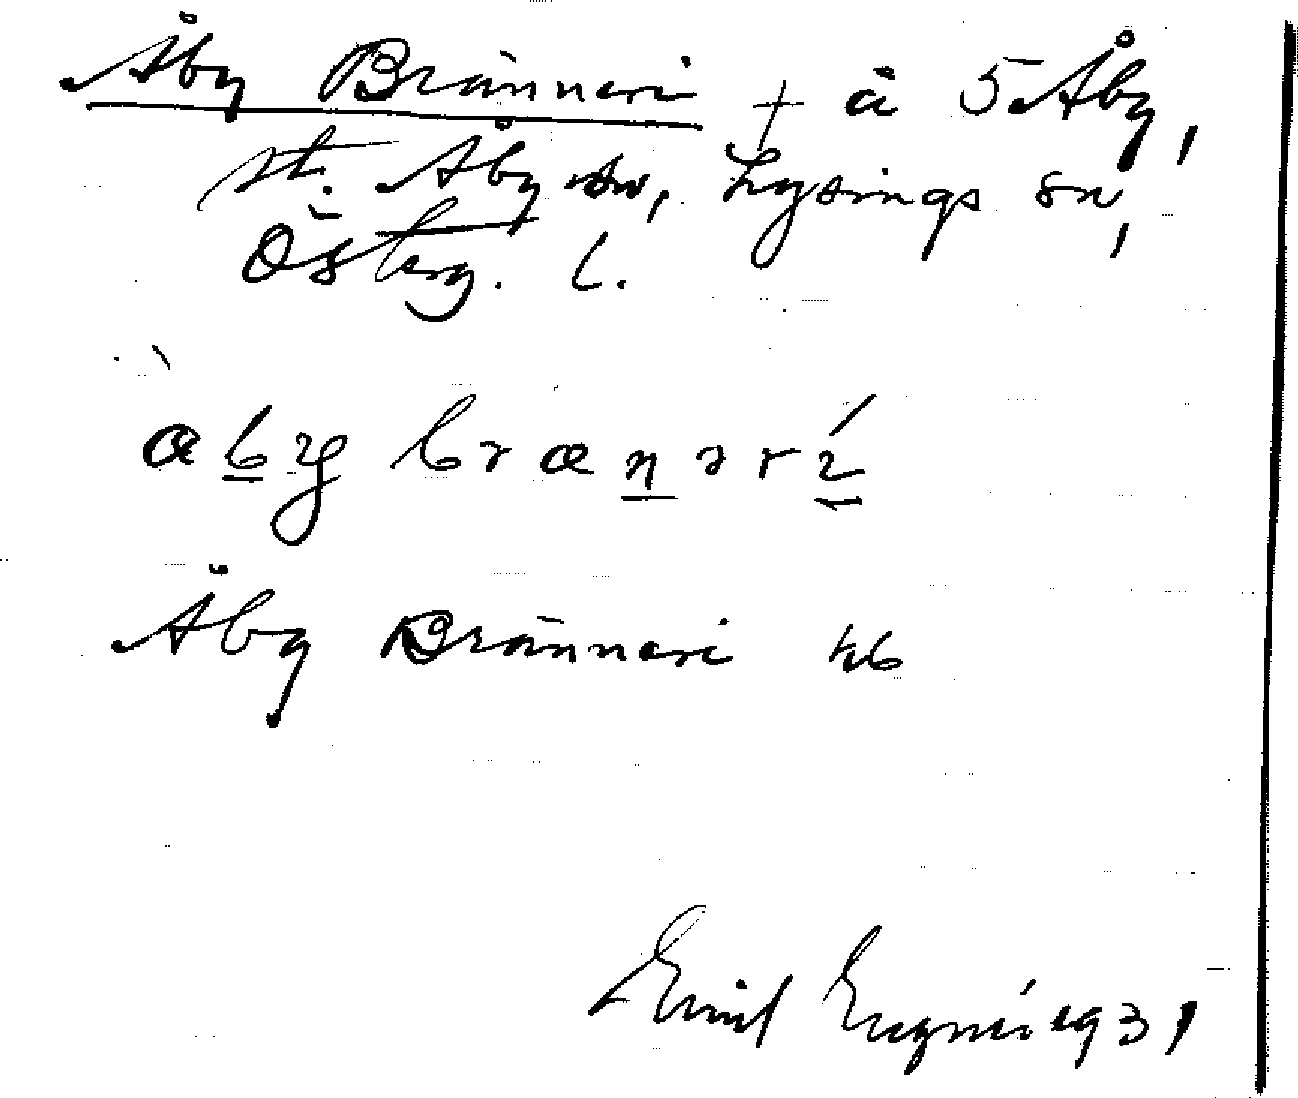 Åby Bränneri † å 5 Åby,
st. Åby sn, Lysings hd,
Österg. l.
åby brænərí
Åby Bränneri hb
Emil 1931